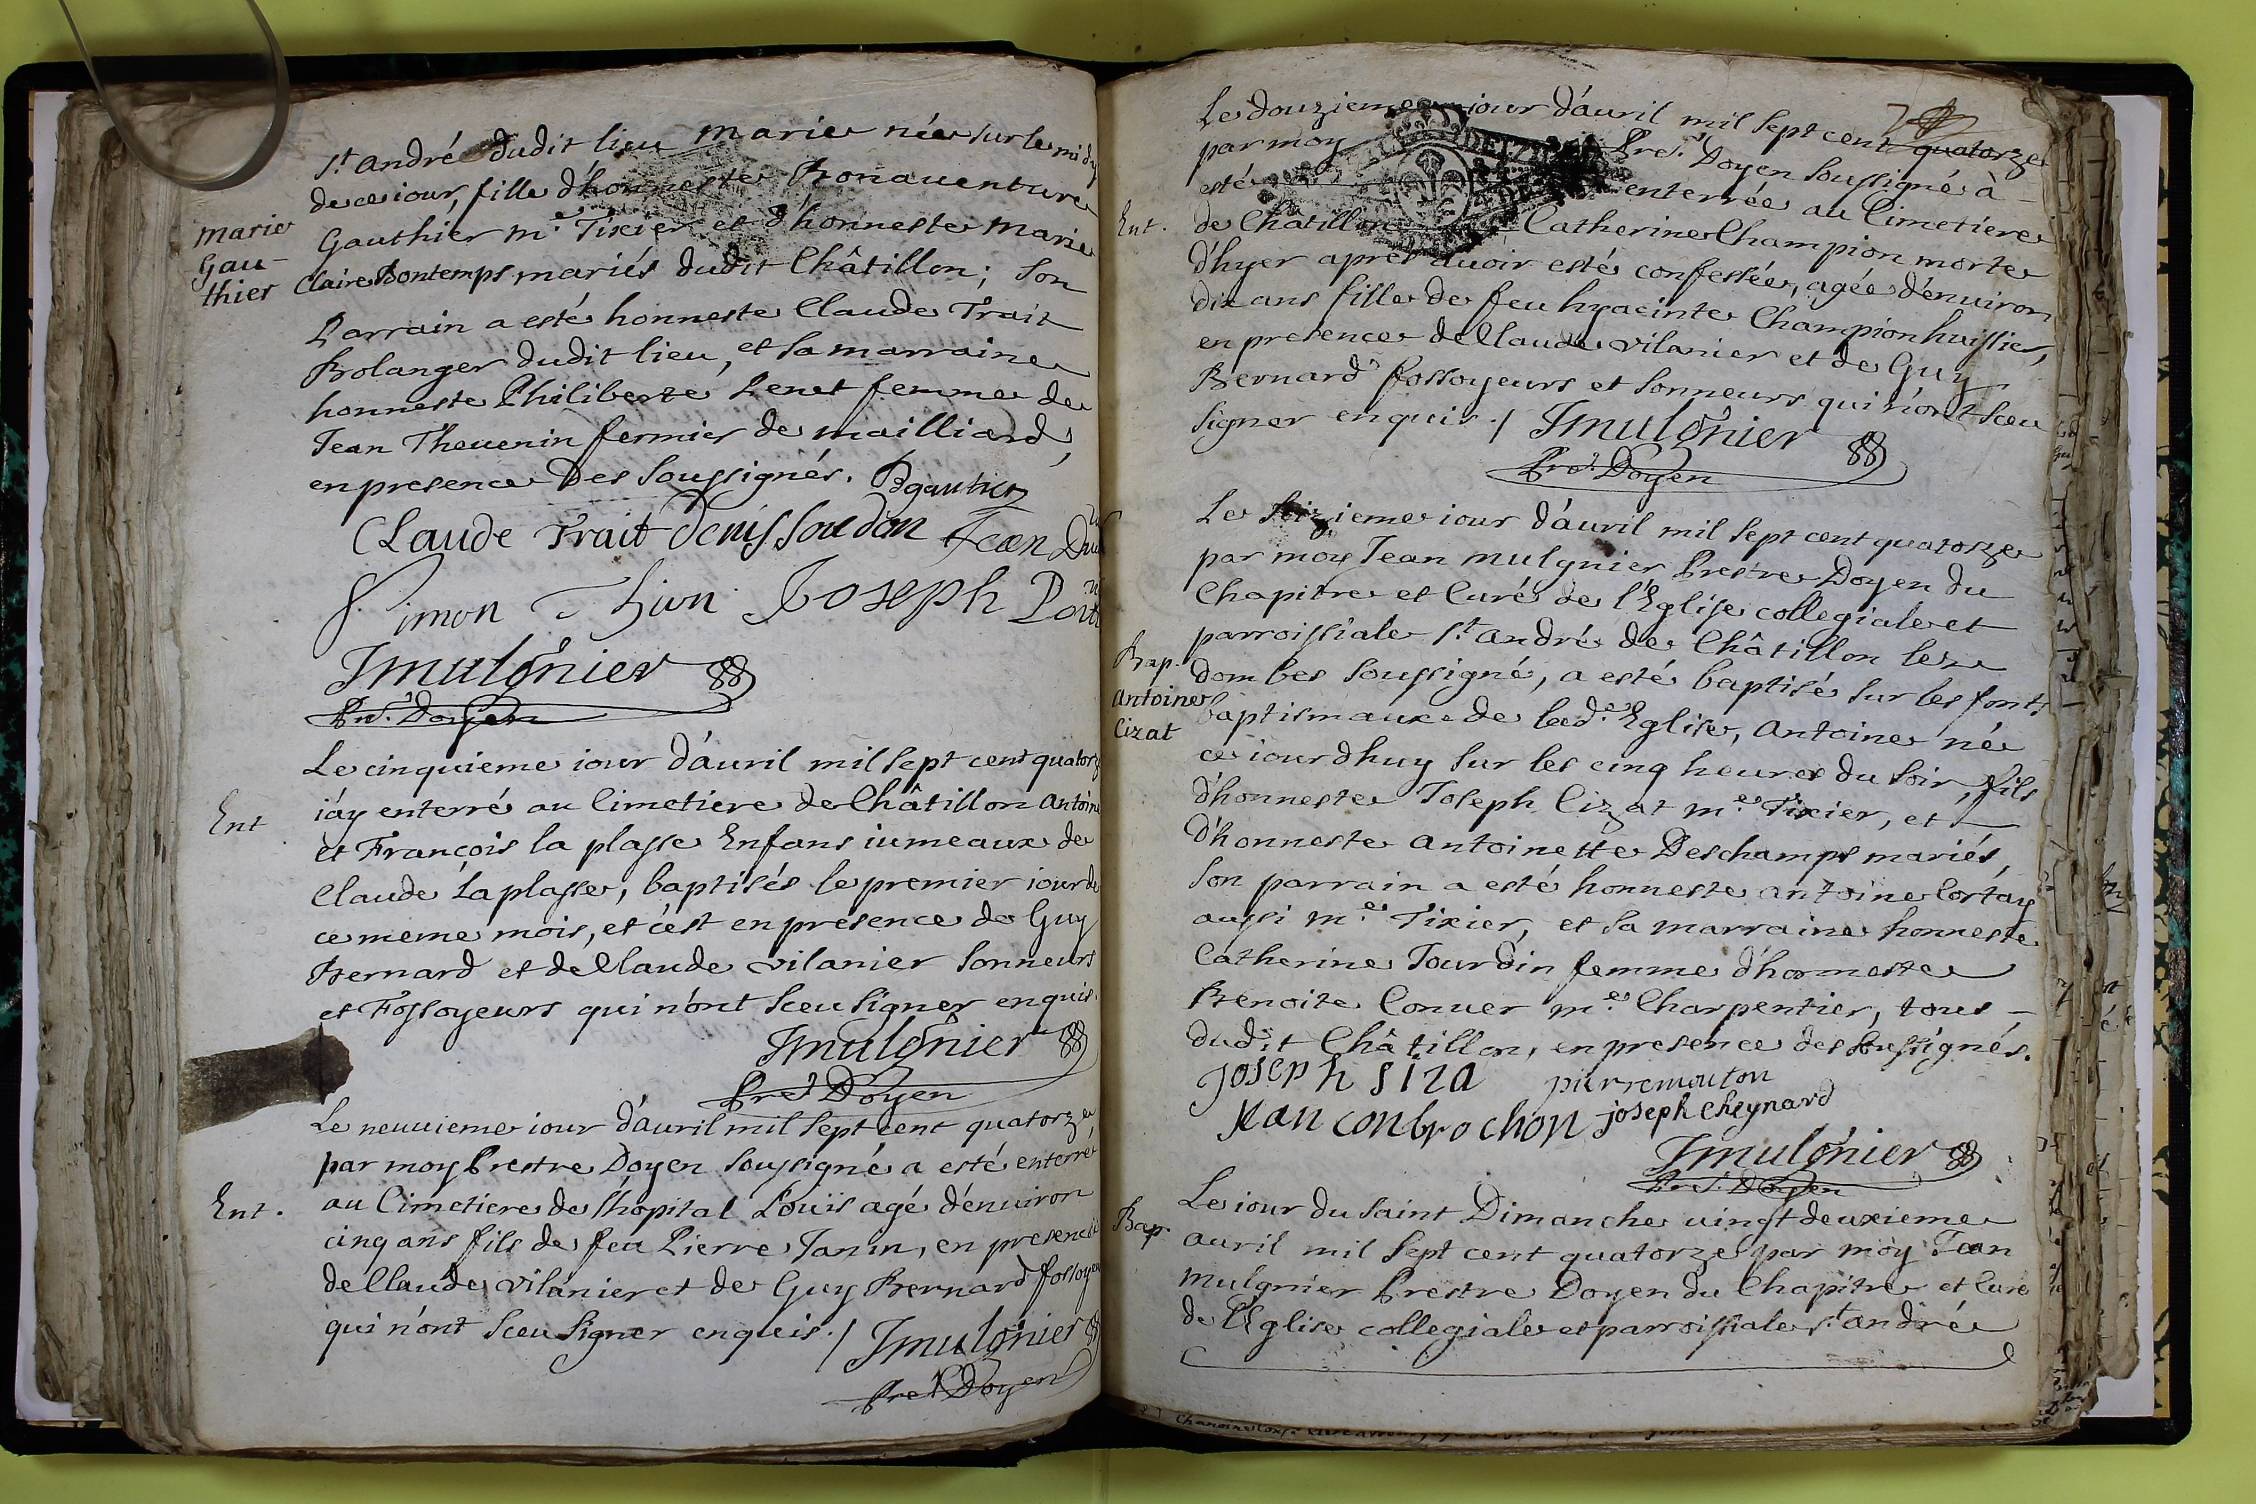 St. André dudit lieu Marie née sur le midy
de ce iour, fille d'honneste Bonauenture
Gauthier me. Tixier et d'honneste Marie
Claire Bontemps mariés dudit Châtillon; son
Parrain a esté honneste Claude Trait
Bolanger dudit lieu, et sa marraine
honneste Philiberte Penet femme de
Jean Theuenin fermier de mailliard,
en presence des soussignés. Bgautier
Marie
Gau-
thier
Claude Trait Denis Soudan Jean
Simon Thion Joseph
Jmulgnier
Pret. Doyen
Le cinquieme iour d'auril mil sept cent quatorze
i'ay enterré au Cimetiere de Châtillon Antoine
et François la plasse Enfans iumeaux de
Claude Laplasse, baptisés le premier iour de
ce meme mois, et c'est en presence de Guy
Bernard et de Claude vilanier sonneurs
et Fossoyeurs qui n'ont sceu signer enquis.
Ent
Jmulgnier
Pret Doyen
Le neuuieme iour d'auril mil sept cent quatorze,
par moy Prestre Doyen soussigné a esté enterré
au Cimetiere de l'hopital Louis agé d'enuiron
cinq ans fils de feu Pierre Janin, en presence
de Claude vilanier et de Guy Bernard fossoyeu
qui n'ont sceu signer enquis./ Jmulgnier
Ent.
Pret Doyen
Le douzieme iour d'auril mil sept cent quatorze
par moy Pret. Doyen soussigné à
esté enterrée au Cimetiere
de Châtillon Catherine Champion morte
d'hyer apres auoir esté confessée, agée d'enuiron
dix ans fille de feu hyacinte Champion huissier,
en presence de Claude vilanier et de Guy
Bernard fossoyeurs et sonneurs qui n'ont sceu
signer enquis./ Jmulgnier
Ent.
Pret. Doyen
Le seizieme iour d'auril mil sept cent quatorze
par moy Jean mulgnier Prestre Doyen du
Chapitre et Curé de l'Eglise collegiale et
parroissiale St. André de Châtillon lez
dombes soussigné, a esté baptisé sur les fonts
baptismaux de lade. Eglise, Antoine né
ce iourdhuy sur les cinq heures du soir, fils
d'honneste Joseph Cizat me. Tixier, et
d'honneste Antoinette Deschamps mariés,
son parrain a esté honneste Antoine Cortay
aussi me. Tixier, et sa marraine honneste
Catherine Jourdin femme d'honneste
Benoite Conuer me. Charpentier, tous
dudit Châtillon, en presence des soussignés.
Bap.
Antoine
Cizat
Joseph siza pierre mouton
Jean conbrochon joseph cheynard
Jmulgnier
Pret. Doyen
Le iour du saint Dimanche uingtdeuxieme
auril mil sept cent quatorze par moy Jean
Mulgnier Prestre Doyen du Chapitre et Curé
de l'Eglise collegiale et parroissiale St. André
Bap.